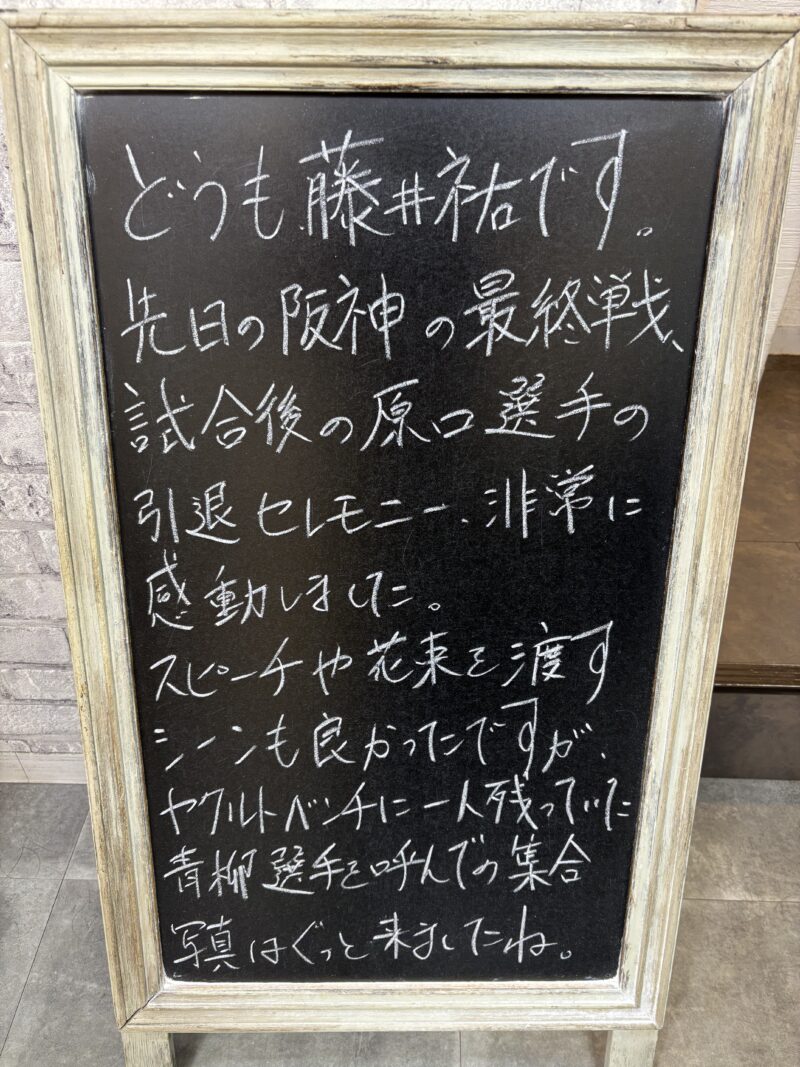 どうも藤井祐です。
先日の阪神の最終戦、
試合後の原口選手の
引退セレモニー、非常に
感動しました。
スピーチや花束を渡す
シーンも良かったですが、
ヤクルトベンチに一人残っていた
青柳選手を呼んでの集合
写真はぐっと来ましたね。